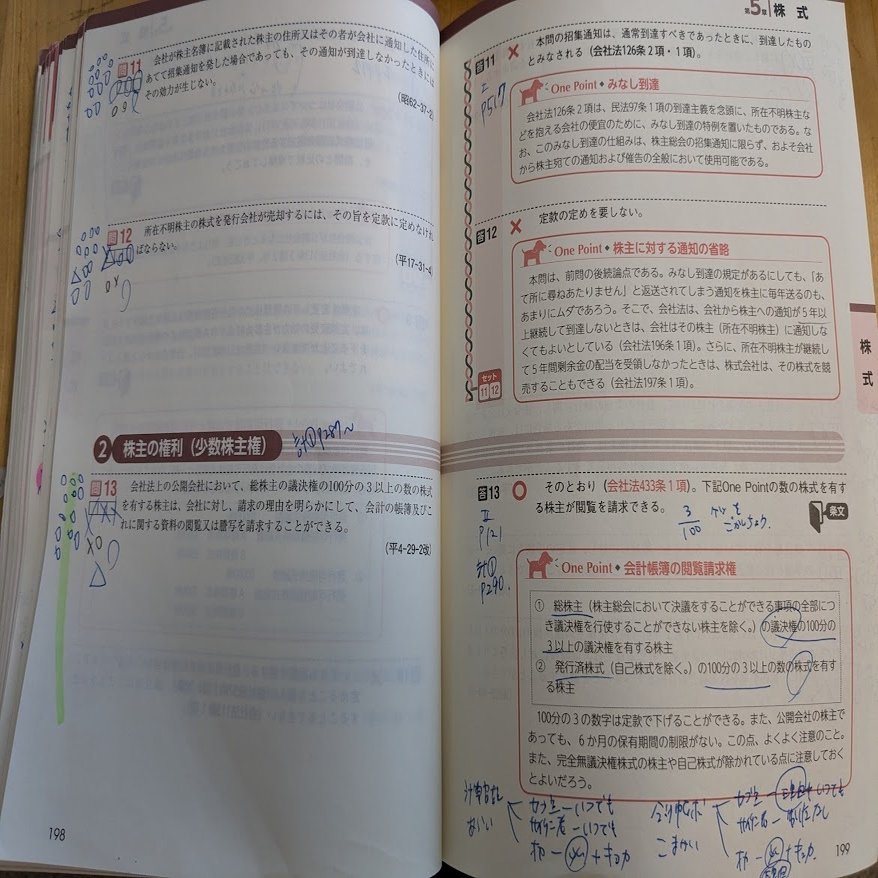 会社が株主名簿に記載された株主の住所又はその者が会社に通知した住所に
問11
あてて招集通知を発した場合であっても、その通知が到達しなかったときには
その効力が生じない。
(昭62-37-2)
所在不明株主の株式を発行会社が売却するには、その旨を定款に定めなけれ
問12
ばならない。
(平17-31-4)
2 株主の権利(少数株主権)
問13 会社法上の公開会社において、総株主の議決権の100分の3以上の数の株式
を有する株主は、会社に対し、請求の理由を明らかにして、会計の帳簿及びこ
れに関する資料の閲覧又は謄写を請求することができる。
(平4-29-2改)
198
第5章 株式
答11 × 本問の招集通知は、通常到達すべきであったときに、到達したもの
とみなされる(会社法126条2項・1項)。
II
P517
One Point◆みなし到達
会社法126条2項は、民法97条1項の到達主義を念頭に、所在不明株主な
どを抱える会社の便宜のために、みなし到達の特例を置いたものである。な
お、このみなし到達の仕組みは、株主総会の招集通知に限らず、およそ会社
から株主宛ての通知および催告の全般において使用可能である。
答12 × 定款の定めを要しない。
One Point◆株主に対する通知の省略
本問は、前問の後続論点である。みなし到達の規定があるにしても、「あ
て所に尋ねあたりません」と返送されてしまう通知を株主に毎年送るのも、
あまりにムダであろう。そこで、会社法は、会社から株主への通知が5年以
上継続して到達しないときは、会社はその株主(所在不明株主)に通知しな
くてもよいとしている(会社法196条1項)。さらに、所在不明株主が継続し
て5年間剰余金の配当を受領しなかったときは、株式会社は、その株式を競
売することもできる(会社法197条1項)。
セット
11 12
株式
答13 ○ そのとおり(会社法433条1項)。下記One Pointの数の株式を有す
る株主が閲覧を請求できる。
条文
3/100
II
P121
計①
P290
One Point◆会計帳簿の閲覧請求権
① 総株主(株主総会において決議をすることができる事項の全部につ
き議決権を行使することができない株主を除く。)の議決権の100分の
3以上の議決権を有する株主
② 発行済株式(自己株式を除く。)の100分の3以上の数の株式を有す
る株主
100分の3の数字は定款で下げることができる。また、公開会社の株主で
あっても、6か月の保有期間の制限がない。この点、よくよく注意のこと。
また、完全無議決権株式の株主や自己株式が除かれている点に注意しておく
とよいだろう。
199